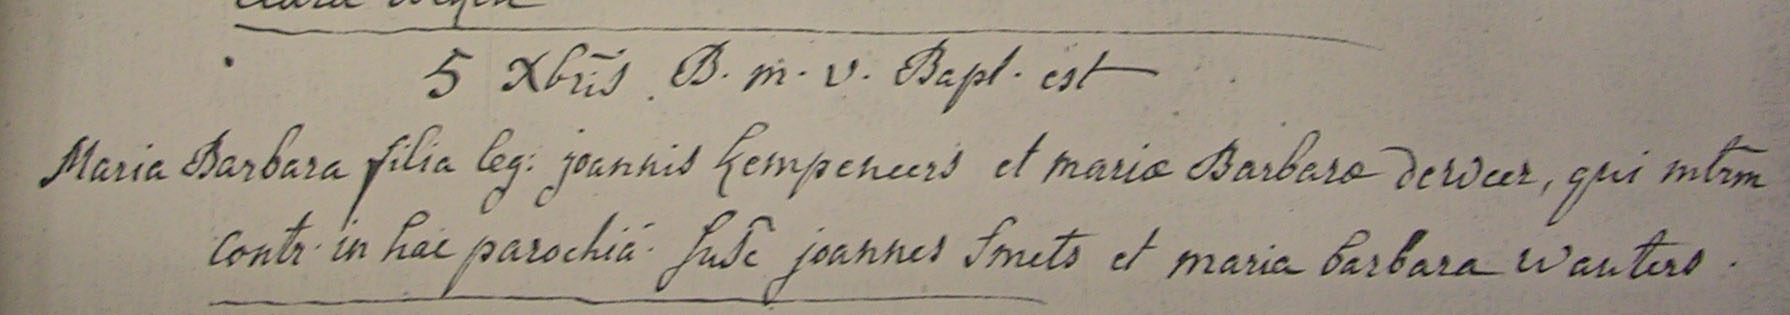 5 Xbris B. m. v. Bapt. est
Maria Barbara filia leg: joannis Kempeneers et mariæ Barbaræ derveer, qui mtrm
contr. in hac parochiâ. Susc joannes Smets et maria barbara Wauters.